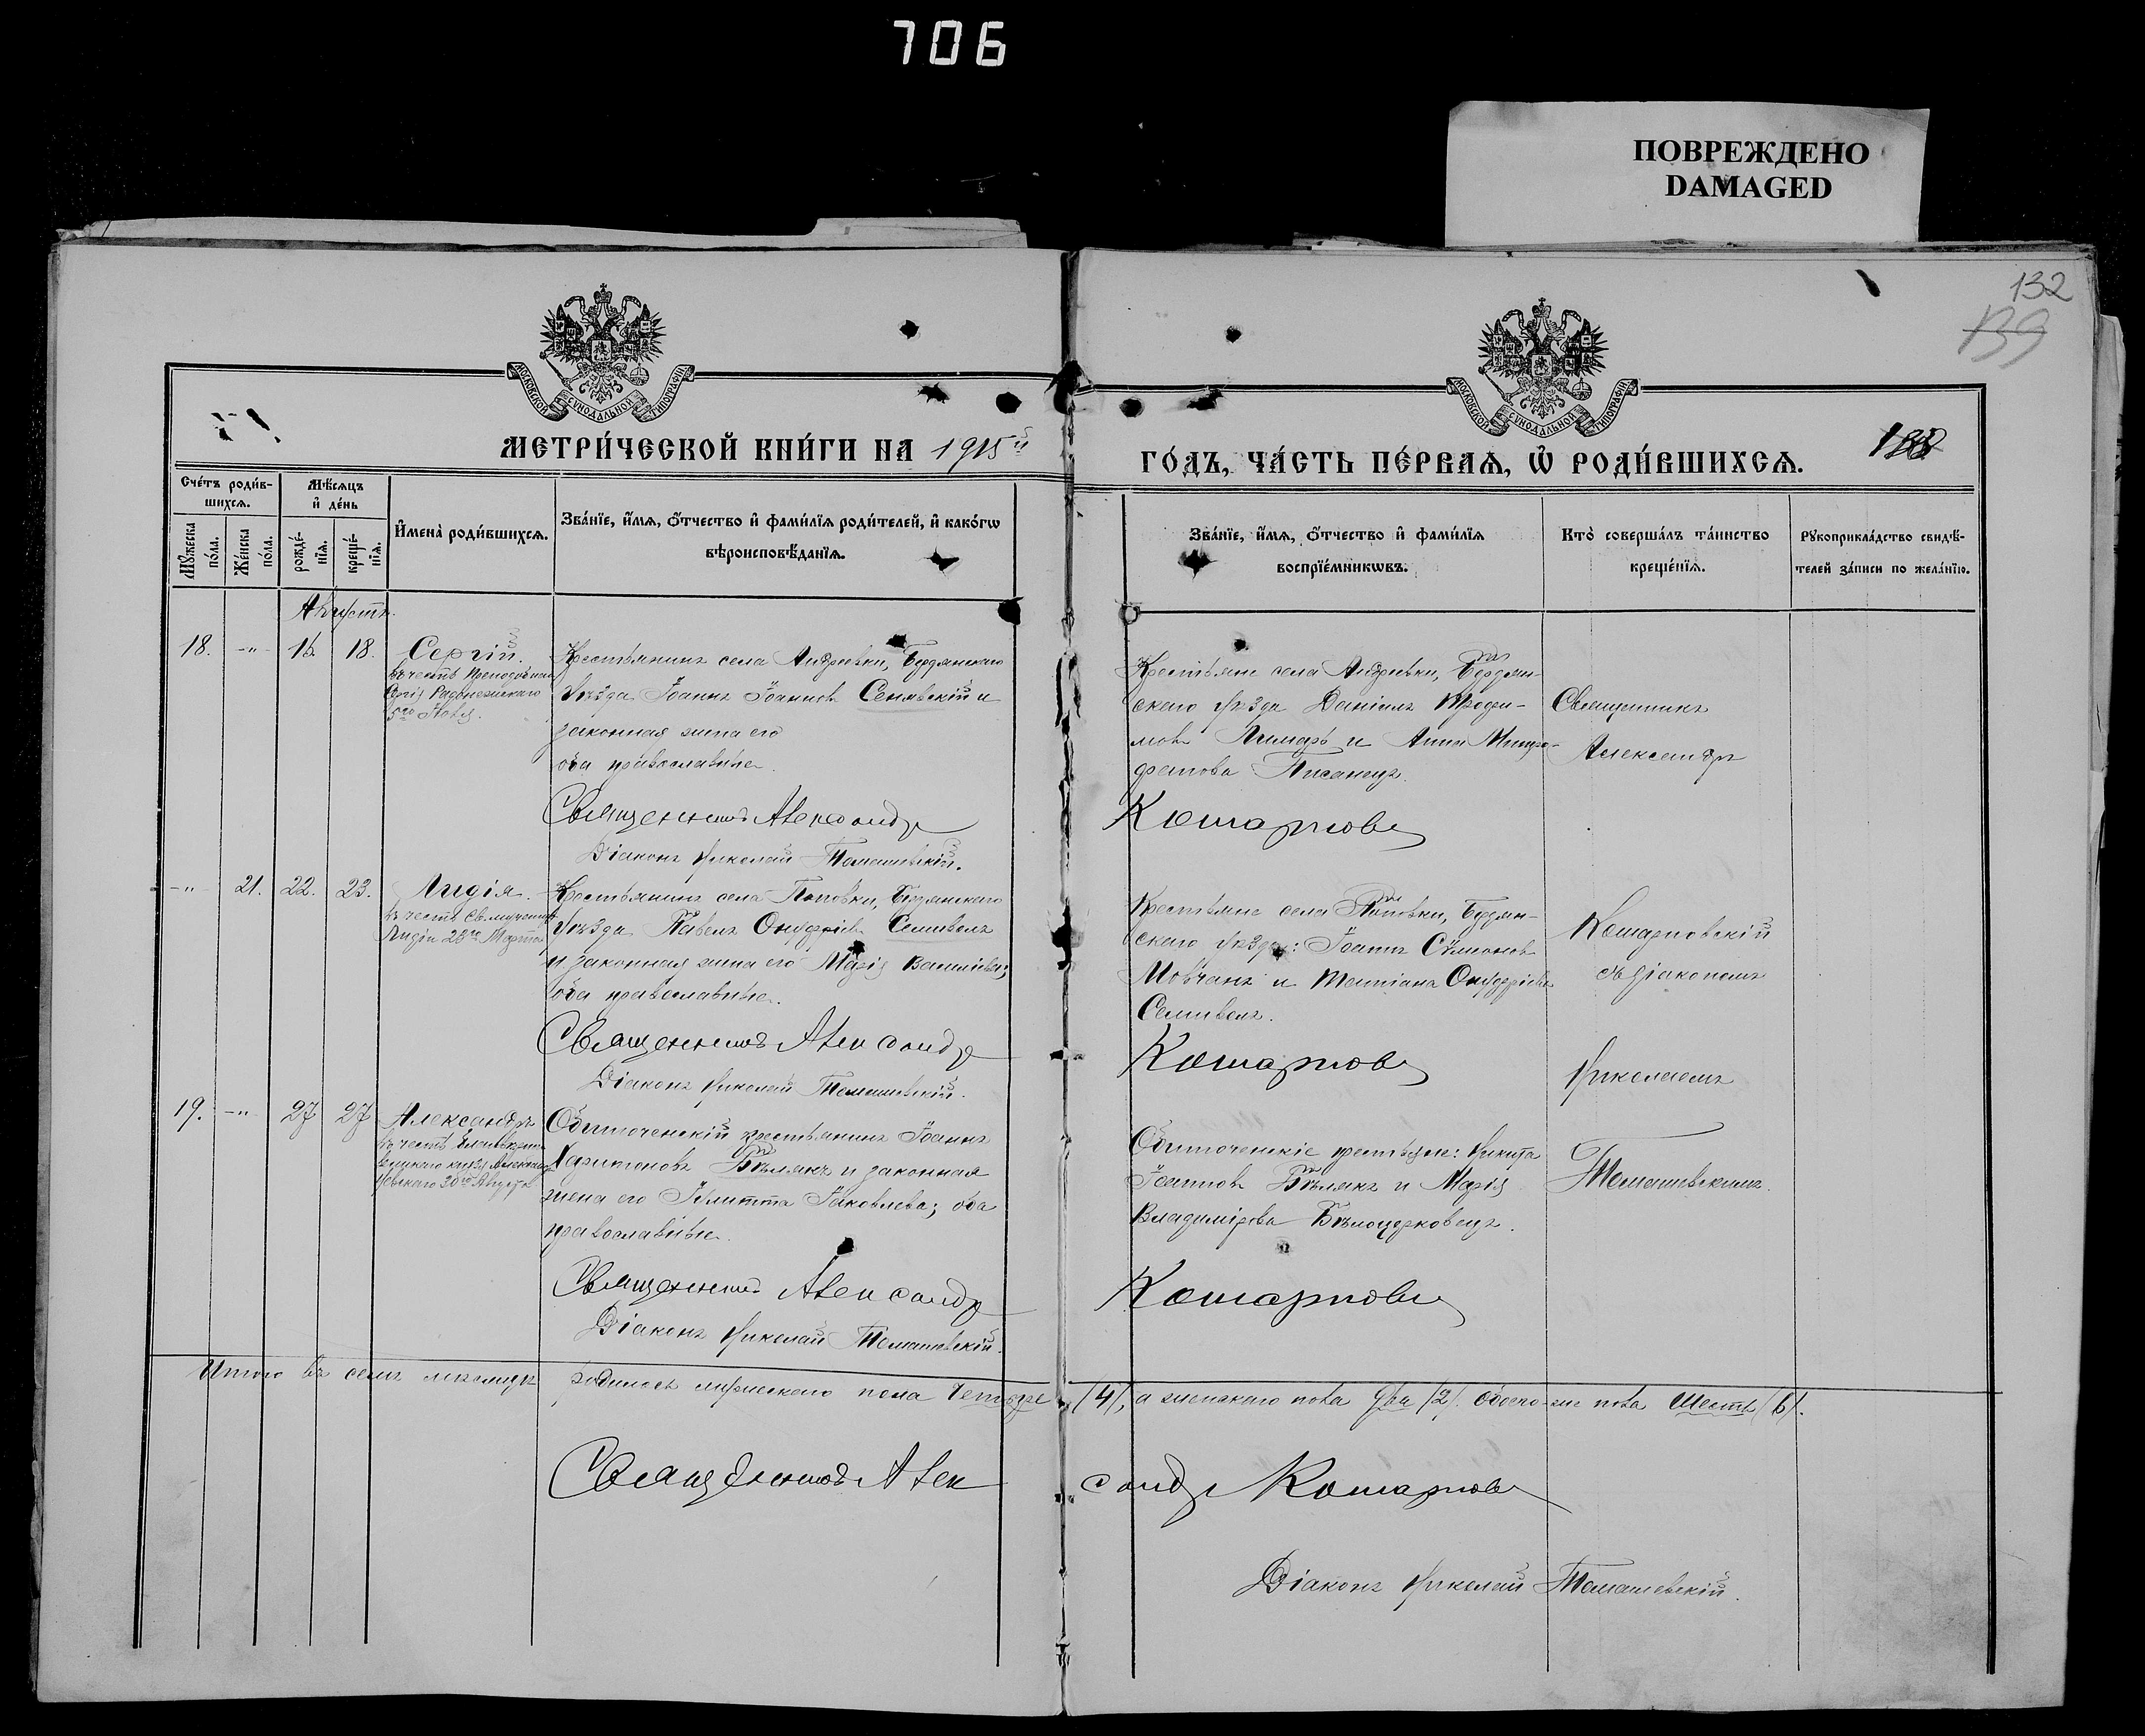 706
ПОВРЕЖДЕНО
DAMAGED
132
139
МОСКОВСКОЙ СѴНОДАЛЬНОЙ ТИПОГРАФІИ
МОСКОВСКОЙ СѴНОДАЛЬНОЙ ТИПОГРАФІИ
МЕТРИ́ЧЕСКОЙ КНИ́ГИ НА 1915й
ГО́ДЪ, ЧА́СТЬ ПЕ́РВАѦ, Ѡ҆ РОДИ́ВШИХСѦ.
Сче́тъ роди́в-
шихсѧ.
Мꙋжеска по́ла.
Же́нска по́ла.
Мѣ́сѧцъ
и҆ де́нь
рожде́-
нїѧ.
креще́-
нїѧ.
И҆мена̀ роди́вшихсѧ.
Зва́нїе, и҆́мѧ, ѻ҆́тчество и҆ фами́лїѧ роди́телей, и҆ како́гѡ
вѣроисповѣ́данїѧ.
Зва́нїе, и҆́мѧ, ѻ҆́тчество и҆ фами́лїѧ
воспрїе́мникѡвъ.
Кто̀ соверша́лъ та́инство
креще́нїѧ.
Рꙋкоприкла́дство свидѣ́-
телей за́писи по жела́нїю.
Августъ.
18. -"- 16. 18. Сергій.
въ честь Преподобнаго
Сергія Радонежскаго
5го Іюля.
Крестьянинъ села Андреевки, Бердянскаго
уѣзда Іоаннъ Іоанновъ Сенявскій и
законная жена его
оба православные.
Священникъ Александръ
Діаконъ Николай Томашевскій.
Крестьяне села Андреевки, Бердян-
скаго уѣзда Даніилъ Трофи-
мовъ Лимарь и Анна Митро-
фанова Писанецъ.
Кошарнов
Священникъ
Александръ
-"- 21. 22. 23. Лидія.
въ честь Св. мученицы
Лидіи 23го Марта
Крестьянинъ села Поповки, Бердянскаго
уѣзда Павелъ Онуфріевъ Семиволъ
и законная жена его Марія Васильева;
оба православные.
Священникъ Александръ
Діаконъ Николай Томашевскій.
Крестьяне села Поповки, Бердян-
скаго уѣзда: Іоаннъ Сѷмоновъ
Мовчанъ и Татіана Онуфріева
Семиволъ.
Кошарнов
Кошарновскій
съ діакономъ
Николаемъ
19. -"- 27 27 Александръ
въ честь Благовѣрн.
Великаго князя Александра
Невскаго 30го Августа
Обиточенскій крестьянинъ Іоаннъ
Харитоновъ Бѣлякъ и законная
жена его Іулитта Іаковлева; оба
православные.
Священникъ Александръ
Діаконъ Николай Томашевскій.
Обиточенскіе крестьяне: Никита
Іоанновъ Бѣлякъ и Марія
Владимірова Бѣлоцерковецъ.
Кошарнов
Томашевскимъ.
Итого въ семъ мѣсяцѣ родилось мужескаго пола четыре (4), а женскаго пола два (2). Обоего же пола шесть (6).
Священникъ Александръ Кошарнов
Діаконъ Николай Томашевскій.